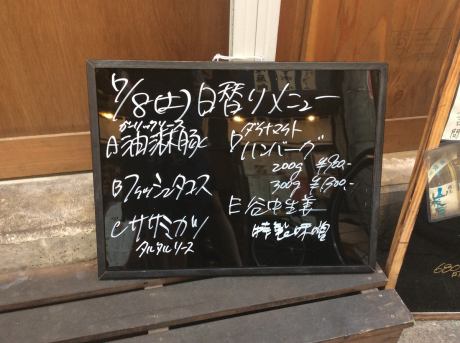 7/8(土)日替りメニュー
ガーリックソース
A油淋豚
Bフィッシュタコス
Cササミカツ
タルタルソース
D ダイナマイト
ハンバーグ
200g ¥900.-
300g ¥1300.-
E谷中生姜
特製味噌
680